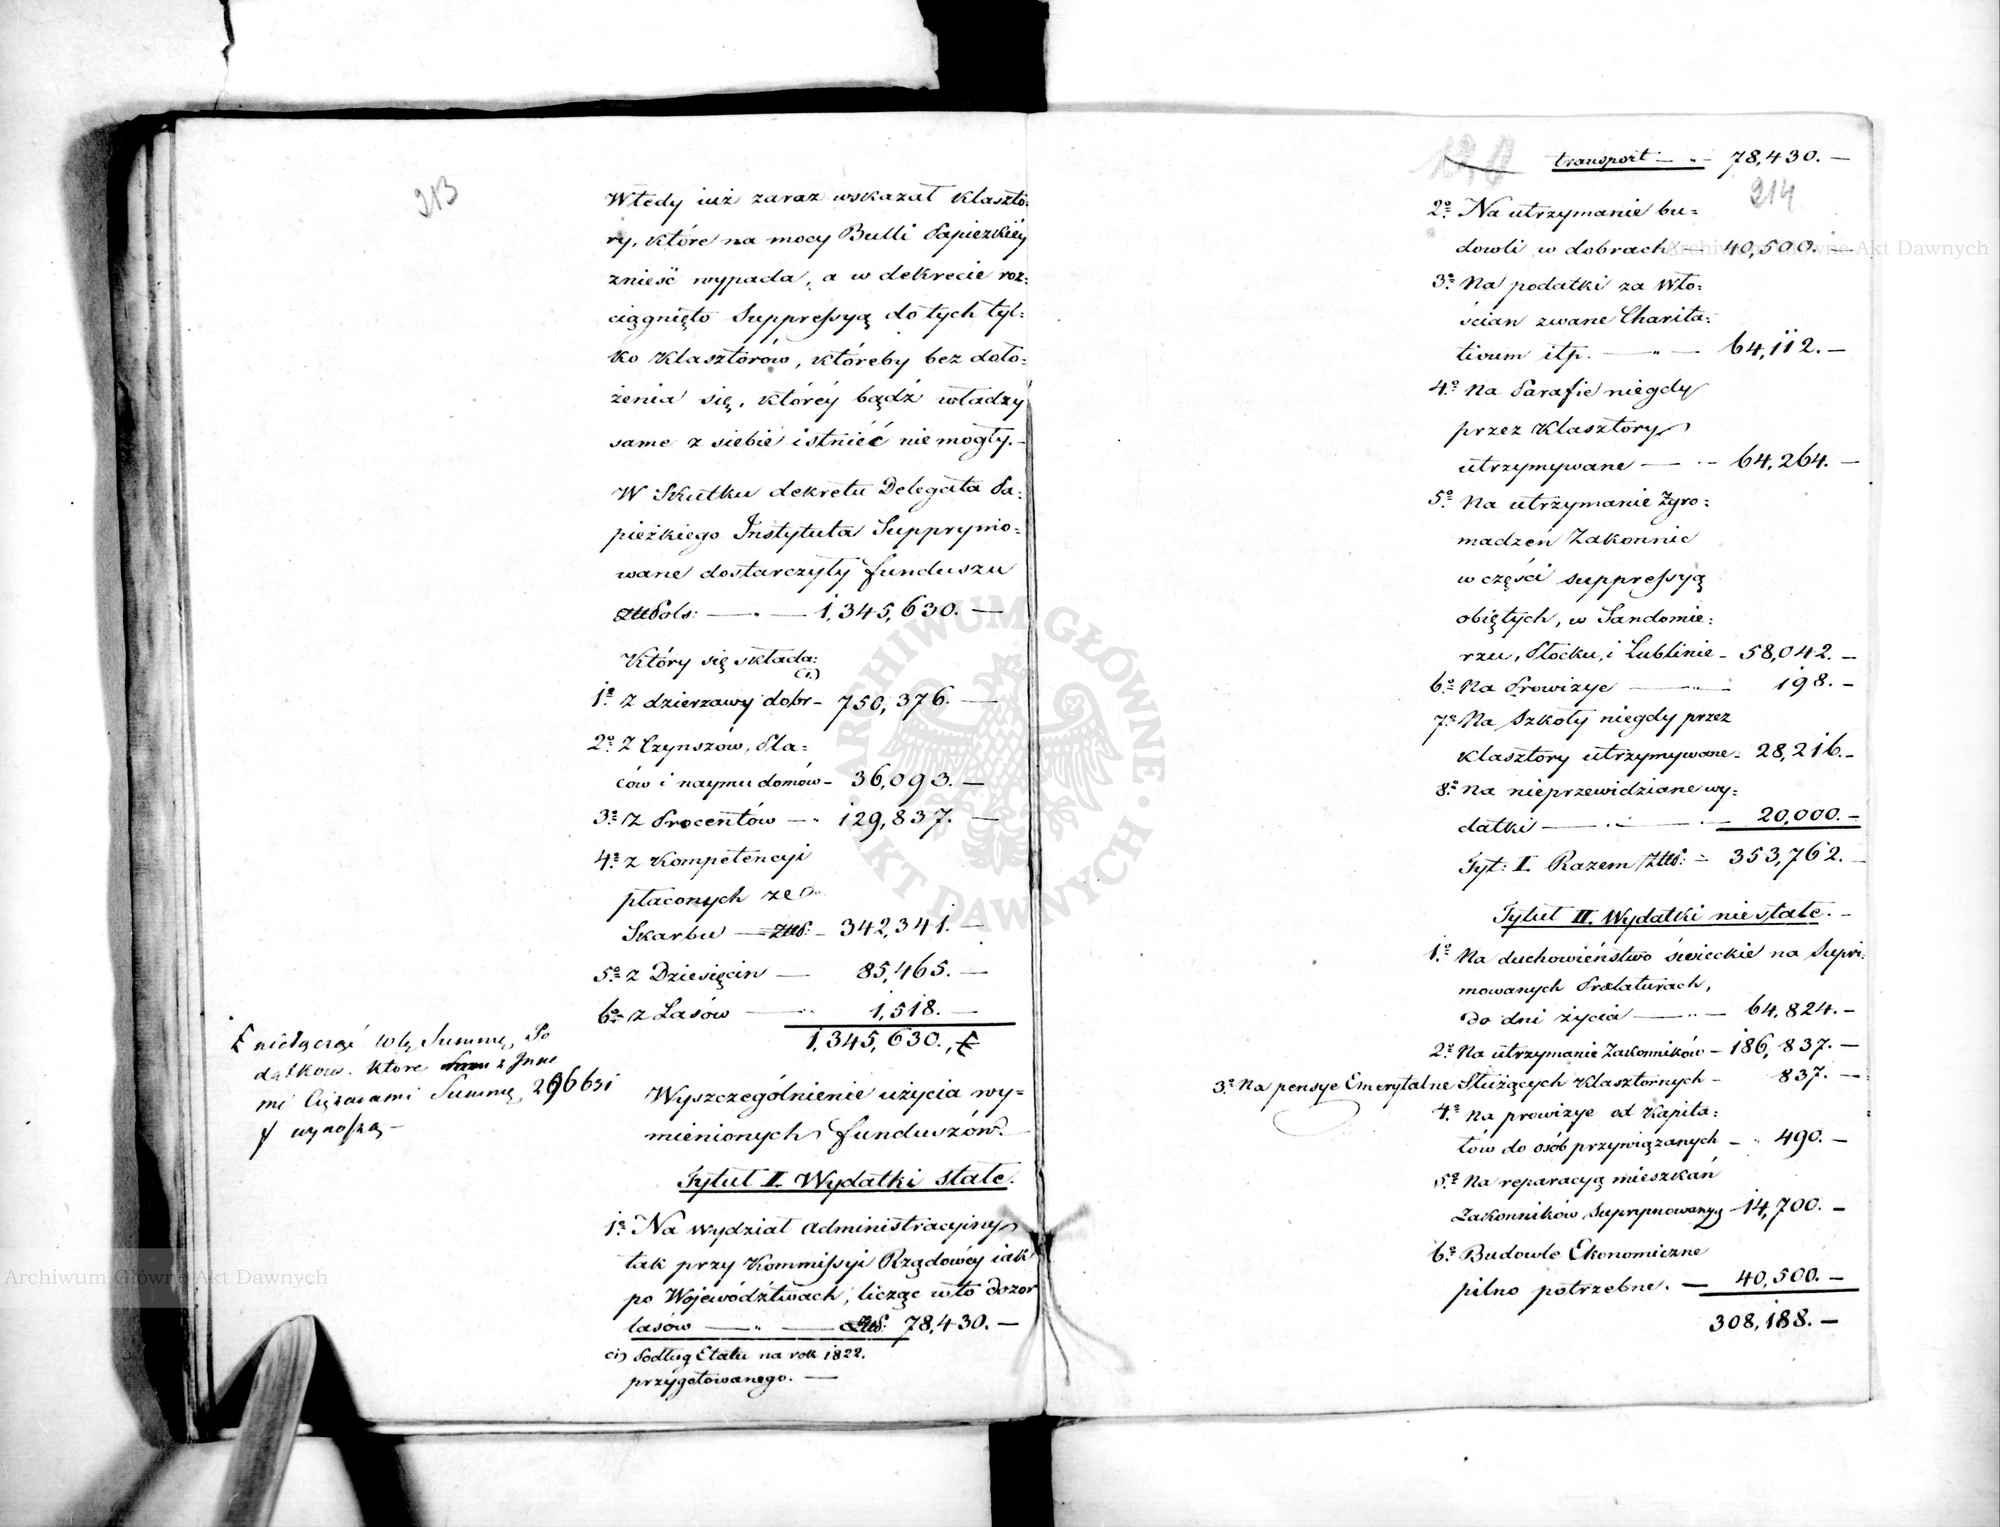 213
Wtedy iuż zaraz wskazał klaszto:
ry, które na mocy Bulli Papiezkiéy
znieść wypada, a w dekrecie roz:
ciągnięto Suppressyą do tych tyl:
ko klasztorów, któreby bez doło:
żenia się, któréy bądź władzy
same z siebie istnieć nie mogły.—
W Skutku dekretu Delegata Pa:
pieżkiego Instytuta Supprymo=
wane dostarczyły funduszu
Pols: — " — 1,345,630. —
Który się składa:
(1.)
1º z dzierzawy dobr — 750,376. —
2º z Czynszów, Pla=
ców i naymu domów — 36,093. —
3º z Procentów — " 129,837. —
4º z Kompetencyi
płaconych ze
Skarbu — Złłł: — 342,341. —
5º z Dziesięcin — 85,465. —
6º z Lasów — 1,518. —
1,345,630.
nie łącząc w tę Summę, Po
datkow. które z Inne
mi Ciężarami Summę
wynoszą —
Wyszczególnienie użycia wy=
mienionych funduszów.
Tytuł I. Wydatki stałe.
1º Na wydział administracyiny
tak przy Kommissyi Rządowéy iak
po Województwach, licząc w to dozor
lasów — " — 78,430. —
(1) Podług Etatu na rok 1822.
przygotowanego. —
transport — " — 78,430. —
214
2º Na utrzymanie bu=
dowli w dobrach — 40,500. —
3º Na podatki za Wło=
ścian zwane Charita=
tivum itp. — " — 64,112. —
4º Na Parafie niegdy
przez Klasztory
utrzymywane — " — 64,264. —
5º Na utrzymanie Zgro=
madzeń Zakonnic
w części suppressyą
obiętych, w Sandomie:
rzu, Płocku, i Lublinie — 58,042. —
6º Na Prowizye — 198. —
7º Na Szkoły niegdy przez
klasztory utrzymywane — 28,216. —
8º Na nieprzewidziane wy=
datki — 20,000. —
Tyt: I. Razem Złłł: — 353,762. —
Tytuł II. Wydatki niestałe. —
1º Na duchowieństwo świeckie na Supri=
mowanych Prælaturach,
do dni życia — " — 64,824. —
2º Na utrzymanie Zakonników — 186,837. —
3º Na pensye Emerytalne Służących Klasztornych — 837. —
4º Na prowizye od Kapita:
łów do osób przywiązanych — " 490. —
5º Na reparacyą mieszkań
Zakonników Suprymowany — 14,700. —
6º Budowle Ekonomiczne
pilno potrzebne. — 40,500. —
308,188. —
ARCHIWUM GŁÓWNE · AKT DAWNYCH ·
Archiwum Główne Akt Dawnych
Archiwum Główne Akt Dawnych